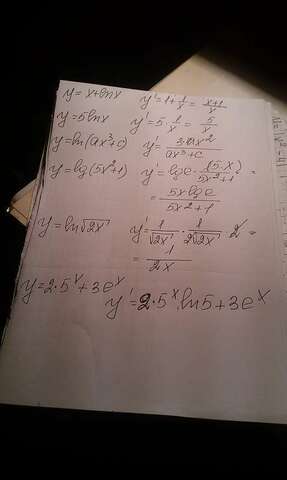 y = x+lnx y' = 1+1/x = x+1/x
y = 5lnx y' = 5·1/x = 5/x
y = ln(ax³+c) y' = 3ax²/ax³+c
y = lg(5x²+1) y' = lge·(5·x)/5x²+1 =
= 5x lge/5x²+1
y = ln√2x y' = 1/√2x · 1/2√2x · 2 =
= 1/2x
y = 2·5ˣ+3eˣ
y' = 2·5ˣ·ln5+3eˣ